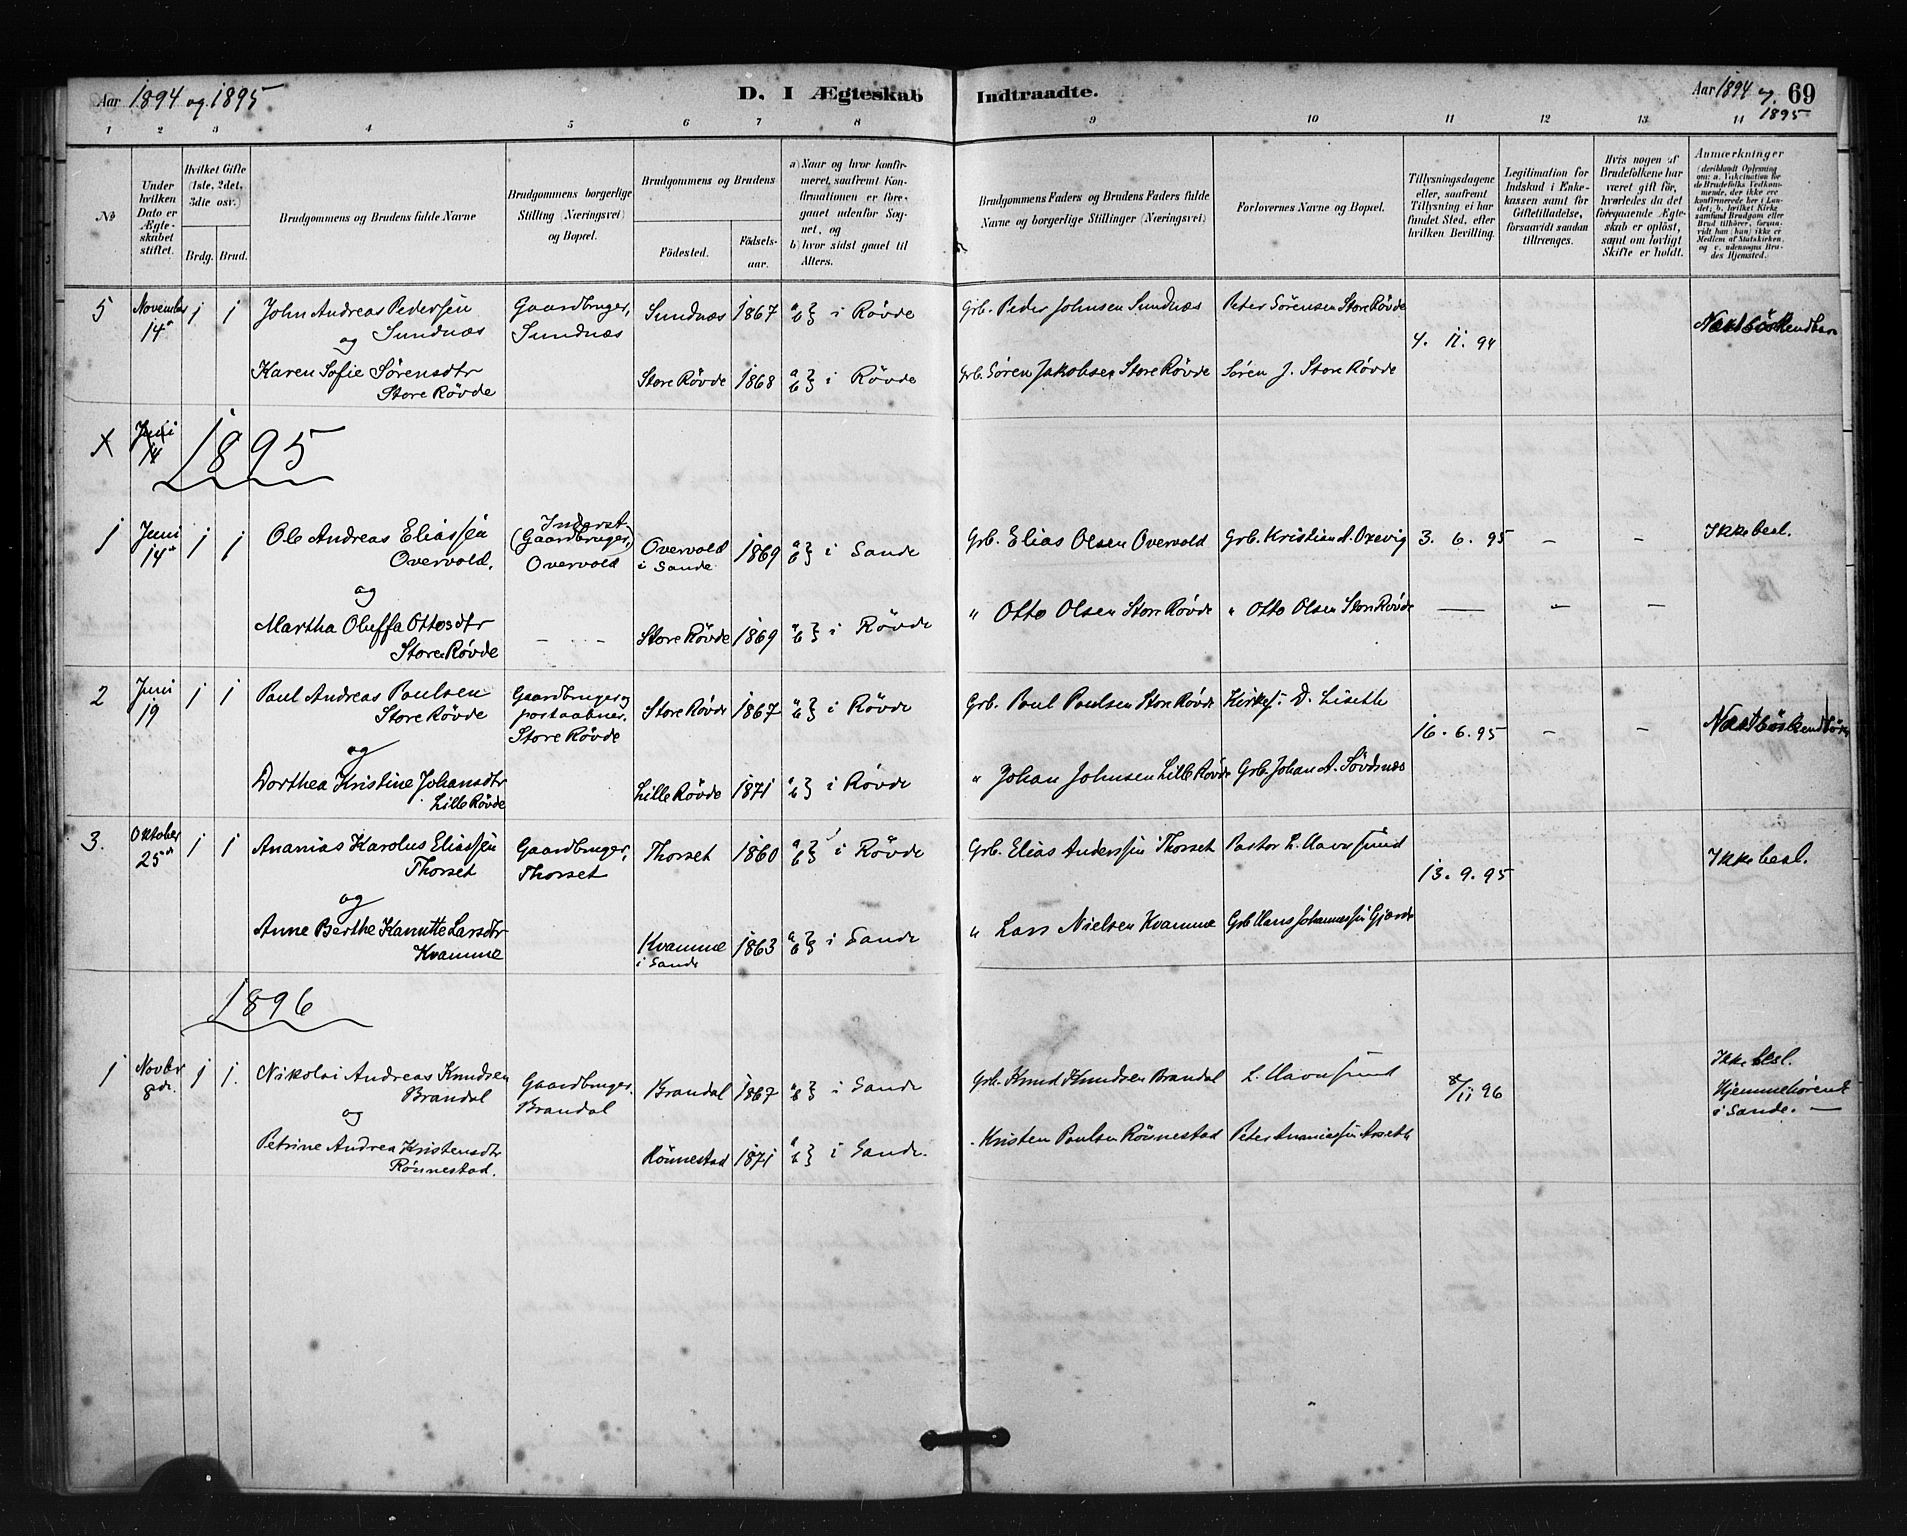 Aar 1894 og 1895
D. I Ægteskab Indtraadte.
Aar 1894 og 1895
69
1 2 3 4 5 6 7 8 9 10 11 12 13 14
No
Under hvilken Dato er Ægteskabet stiftet.
Hvilket Gifte (1ste, 2det, 3die osv.)
Brdg. Brud.
Brudgommens og Brudens fulde Navne
Brudgommens borgerlige Stilling (Næringsvei) og Bopæl.
Brudgommens og Brudens
Fødested.
Fødselsaar.
a) Naar og hvor konfirmeret, saafremt Konfirmationen er foregaaet udenfor Sognet, og
b) hvor sidst gaaet til Alters.
Brudgommens Faders og Brudens Faders fulde Navne og borgerlige Stillinger (Næringsvei)
Forlovernes Navne og Bopæl.
Tillysningsdagene eller, saafremt Tillysning ei har fundet Sted, efter hvilken Bevilling.
Legitimation for Indskud i Enkekassen samt for Giftetilladelse, forsaavidt saadan tiltrænges.
Hvis nogen af Brudefolkene har været gift før, hvorledes da det foregaaende Ægteskab er opløst, samt om lovligt Skifte er holdt.
Anmærkninger (deriblandt Oplysning om: a. Vakcination for de Brudefolks Vedkommende, der ikke ere konfirmerede her i Landet; b. hvilket Kirkesamfund Brudgom eller Brud tilhører, forsaavidt han (hun) ikke er Medlem af Statskirken, og c. udensogns Brudes Hjemsted.)
5 November 14de 1 1 John Andreas Pedersen Sundnæs Gaardbruger, Sundnæs Sundnæs 1867 a b } i Røvde Grb. Peder Johnsen Sundnæs Peter Sørensen Store Røvde 4. 11. 94
og
Karen Sofie Sørensdtr Store Røvde Store Røvde 1868 a b } i Røvde Grb. Søren Jakobsen Store Røvde Søren J. Store Røvde
1 Juni 14
1895
1 Juni 14de 1 1 Ole Andreas Eliassen Overvold. Inderst (Gaardbruger) Overvold Overvold i Sande 1869 a b } i Sande Grb. Elias Olsen Overvold Grb. Kristian A. Oxevig 3. 6. 95 – – Ikke besl.
og
Martha Oluffa Ottosdtr Store Røvde – – – Store Røvde 1869 a b } i Røvde " Otto Olsen Store Røvde " Otto Olsen Store Røvde — – –
2 Juni 19 1 1 Paul Andreas Paulsen Store Røvde Gaardbruger og postaabner. Store Røvde Store Røvde 1867 a b } i Røvde Grb. Paul Paulsen Store Røvde Kirkes. D. Liseth 16. 6. 95 – –
og
Dorthea Kristine Johansdtr Lille Røvde Lille Røvde 1871 a b } i Røvde " Johan Johnsen Lille Røvde Grb. Johan A. Søvdsnæs
3. Oktober 25de 1 1 Ananias Karolus Eliassen Thorset Gaardbruger, Thorset Thorset 1860 a b } i Røvde Grb. Elias Anderssen Thorset Pastor L. Havnsund 13. 9. 95 Ikke besl.
og
Anne Berthe Kanutte Larsdtr Kvamme Kvamme i Sande 1863 a b } i Sande " Lars Nielsen Kvamme Grb Hans Johannessen Gjærde
1896
1 Novbr 8de. 1 1. Nikolai Andreas Knudsen Brandal Gaardbruger. Brandal Brandal 1867 a b } i Sande Grb. Knud Knudsen Brandal L. Havnsund 8/11 96 Ikke besl. Hjemmehørende i Sande. —
og
Petrine Andrea Kristensdtr Rønnestad. Rønnestad 1871 a b } i Sande. Kristen Paulsen Rønnestad Peter Ananiassen